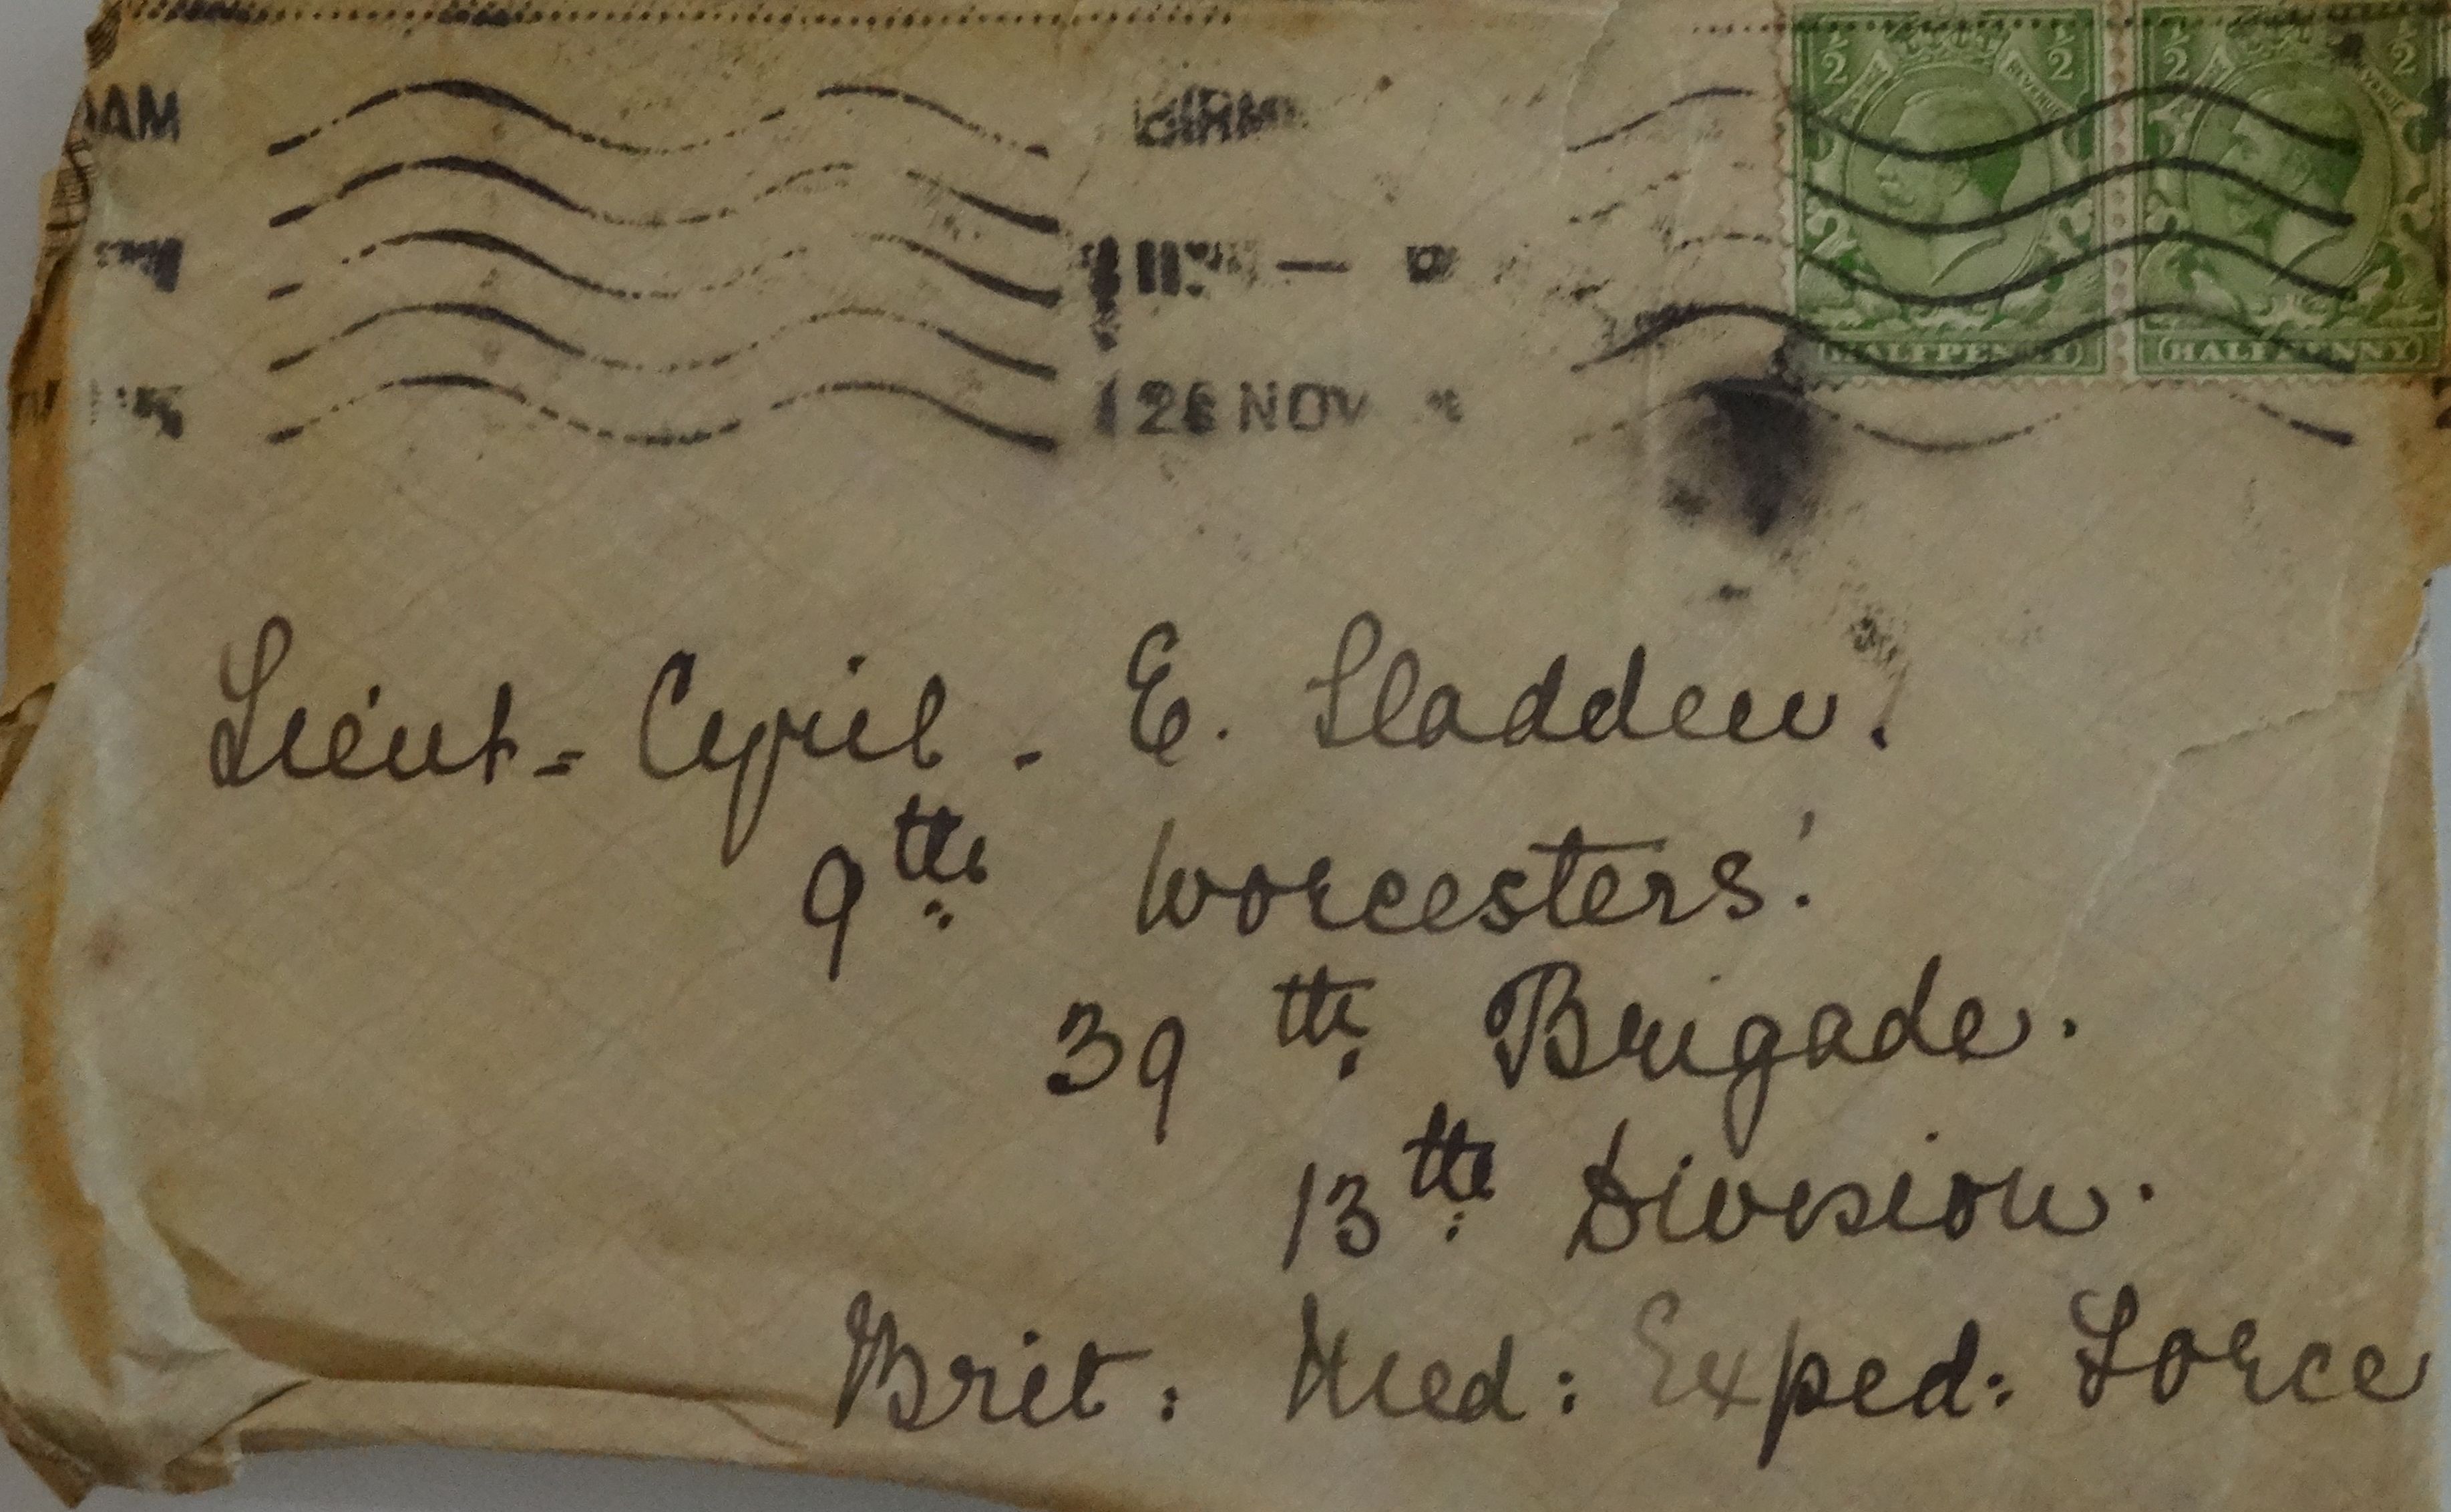 ½ ½ ½ ½
REVENUE
26 NOV
HALFPENNY HALFPENNY
Lieut- Cyril - E. Sladden.
9th Worcesters!
39th Brigade.
13th Division.
Brit: Med: Exped: Force